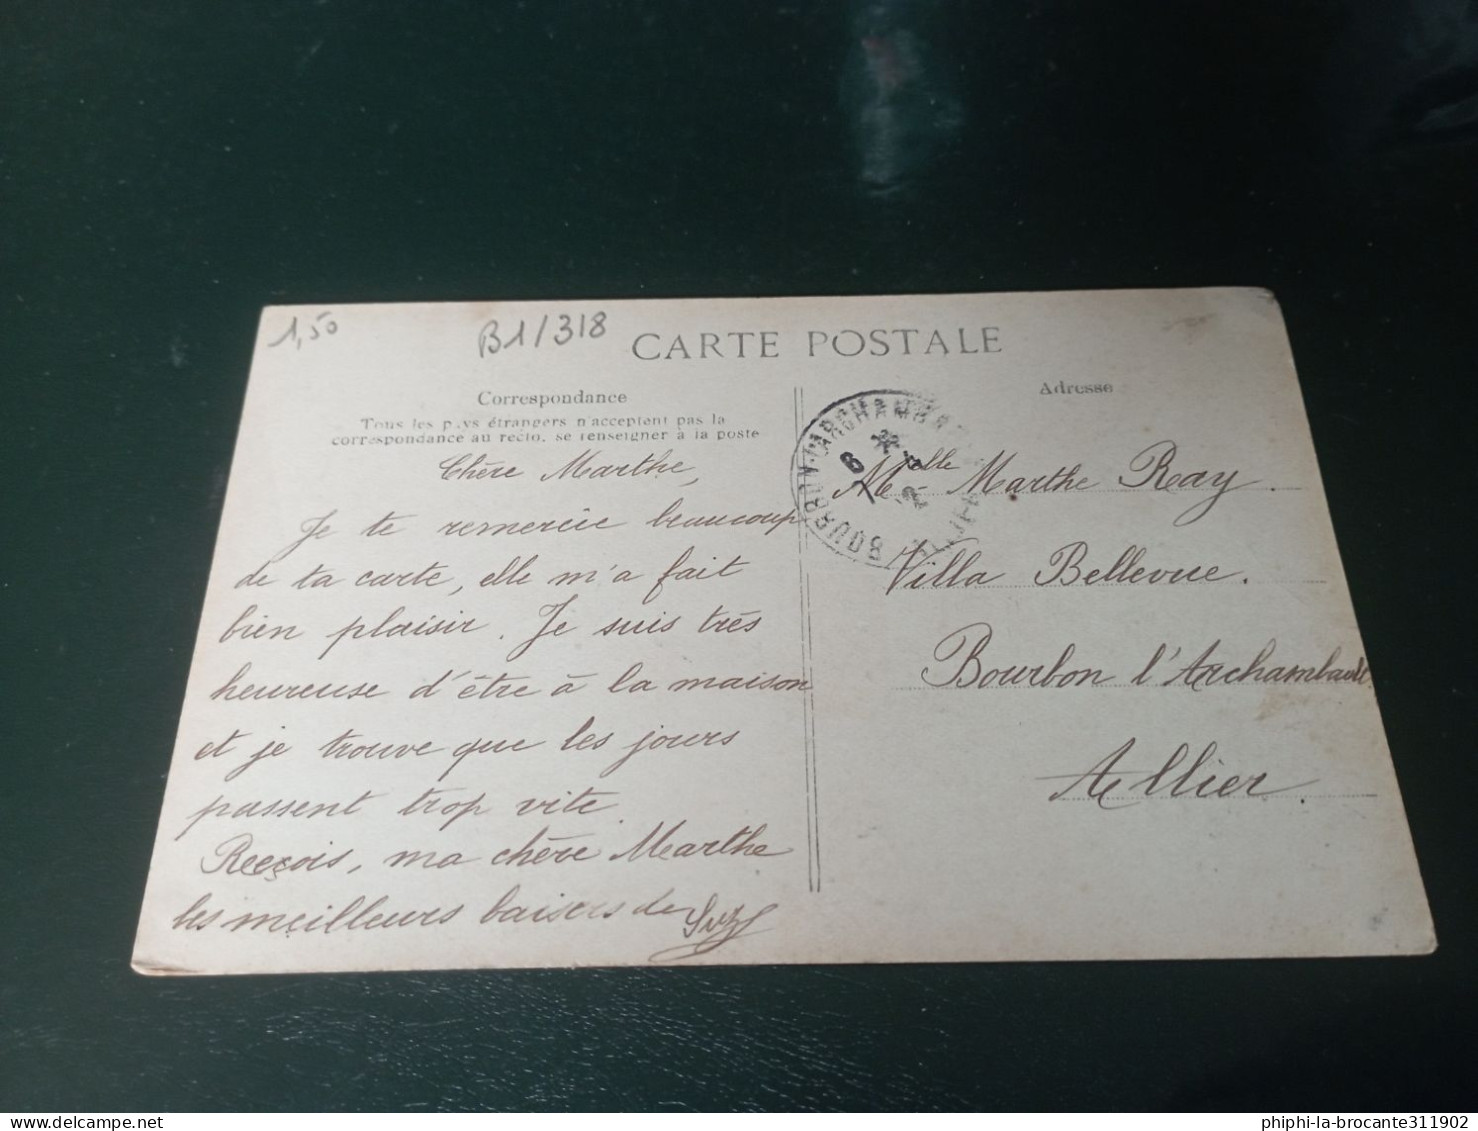 1,50
B1/318
CARTE POSTALE
Correspondance
Tous les pays étrangers n'acceptent pas la
correspondance au recto, se renseigner à la poste
Chère Marthe,
Je te remercie beaucoup
de ta carte, elle m'a fait
bien plaisir. Je suis très
heureuse d'être à la maison
et je trouve que les jours
passent trop vite.
Reçois, ma chère Marthe
les meilleurs baisers de
Adresse
BOURBON-L'ARCHAMBA
Melle Marthe Ray.
Villa Bellevue.
Bourbon l'Archambault
Allier.
phiphi-la-brocante311902